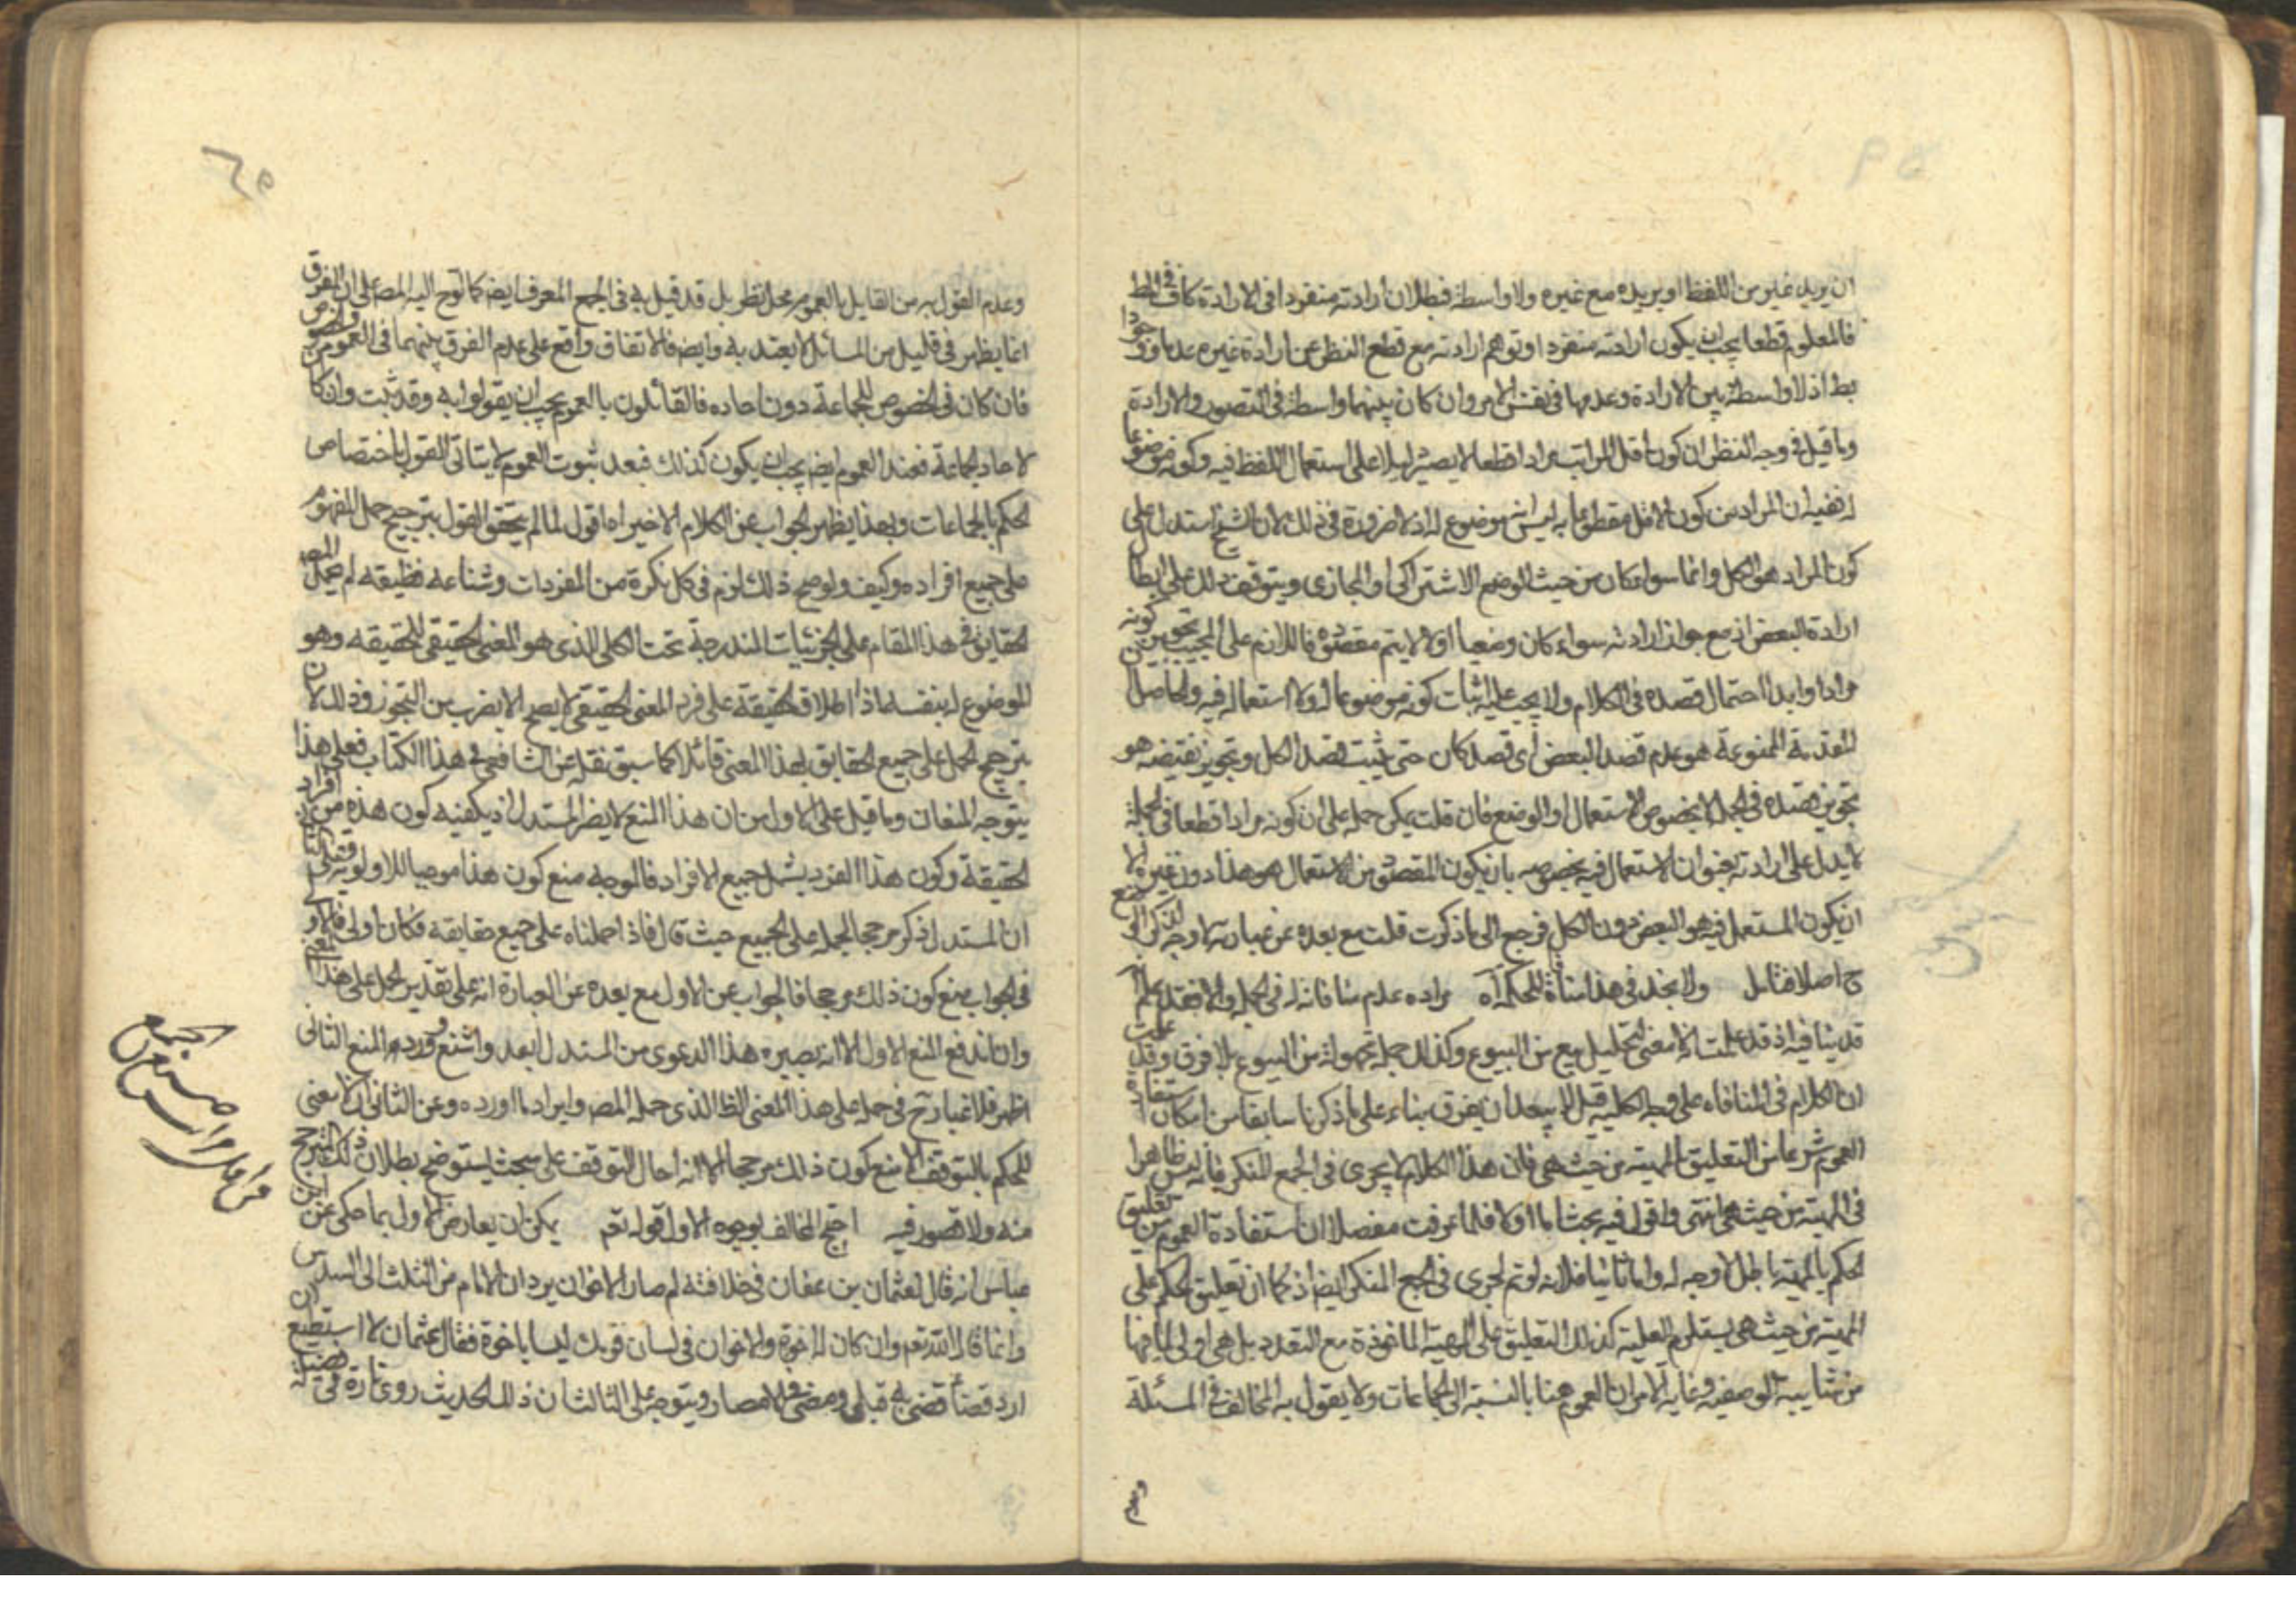 ان يريد غيره من اللفظ او يريده مع غيره ولا واسطة فبطلان ارادته منفردا في الارادة كاف في المط
فالمعلوم قطعا يجب ان يكون ارادته منفردا او توهم ارادته مع قطع النظر عن ارادة غيره عدما ووجودا
بط اذ لا واسطة بين الارادة وعدمها في نفس الامر وان كان بينهما واسطة في التصور والارادة
وما قيل في وجه النظر ان كون اقل المراتب مرادا قطعا لا يصير دليلا على استعمال اللفظ فيه وكونه موضوعا
له ففيه ان المراد من كون الاقل مقطوعا به ليس انه موضوع له اذ لا ضرورة في ذلك لان الشيخ استدل على
كون المراد هو الكل وانما سواء كان من حيث الوضع الاشتراكي او المجازي ويتوقف ذلك على ابطال
ارادة البعض اذ مع جواز ارادته سواء كان وضعيا او لا لا يتم مقصوده فاللازم على المجيب تجويز كونه
مرادا وابداء احتمال قصده في الكلام ولا يجب عليه اثبات كونه موضوعا له ولا استعماله فيه والحاصل ان
المقدمة الممنوعة هو عدم قصد البعض اى قصد كان حتى يثبت قصد الكل وتجويز نقيضه هو
تجويز قصده في الجملة لا بخصوص الاستعمال او الوضع فان قلت يمكن حمله على ان كونه مرادا قطعا في الجملة
لا يدل على ارادته بعنوان الاستعمال فيه بخصوصه بان يكون المقصود من الاستعمال هو هذا دون غيره
ان يكون المستعمل فيه هو البعض دون الكل فرجع الى ما ذكرت قلت مع بعده عن عبارته لا وجه لذكر
ح اصلا فتامل ولا نجد في هذا منافاة للحكمة اه مراده عدم منافاته له في الجملة والا فقد علم
قد ينافيه اذ قد علمت انه لا معنى لتحليل بيع من البيوع وكذلك جملة مجهولة من البيوع بلا فرق وقد علمت
ان الكلام في المنافاة على وجه الكلية قيل لا يبعد ان يفرق بناء على ما ذكرنا سابقا من امكان استفادة
العموم شرعا من التعليق بالمهية من حيث هي فان هذا الكلام لا يجرى في الجمع المنكر فانه ليس ظاهرا
في المهية من حيث هي انتهى واقول فيه بحث اما اولا فلما عرفت مفصلا ان استفادة العموم من تعليق
الحكم بالمهية باطل لا وجه له واما ثانيا فلانه لو تم لجرى في الجمع المنكر ايضا اذ كما ان تعليق الحكم على
المهية من حيث هي يستلزم العلية كذلك التعليق على المهية الماخوذة مع التعدد بل هي اولى لما فيها
من شايبة الوصفية وغاية الامر ان العموم هنا بالنسبة الى الجماعات ولا يقول به المخالف في المسئلة
وعدم
وعدم القول به من القايل بالعموم محل نظر بل قد قيل به في الجمع المعرف ايضا كما لوح اليه المص على ان الفرق
انما يظهر في قليل من المسائل لا يعتد به وايضا فالاتفاق واقع على عدم الفرق بينهما في العموم والخصوص
فان كان في الخصوص للجماعة دون احاده فالقائلون بالعموم يجب ان يقولوا به وقد ثبت وان كان
لاحاد الجماعة فعند العموم ايضا يجب ان يكون كذلك فبعد ثبوت العموم لا يتاتى القول باختصاص
الحكم بالجماعات وبهذا يظهر الجواب عن الكلام الاخير اه اقول لما لم يتحقق القول بترجيح حمل المفهوم
على جميع افراده وكيف ولو صح ذلك لزم في كل نكرة من المفردات وشناعه فظيعة لم يحمل المص
الحقايق في هذا المقام على الجزئيات المندرجة تحت الكلى الذى هو المعنى الحقيقي للحقيقة وهو
الموضوع له بنفسه اذ اطلاق الحقيقة على فرد المعنى الحقيقي لا يصح الا بضرب من التجوز وذلك لان
بترجيح الحمل على جميع الحقايق بهذا المعنى قائلا كما سبق نقله عن الشافعي في هذا الكتاب فعلى هذا
يتوجه المنعان وما قيل على الاول من ان هذا المنع لا يضر المستدل اذ يكفيه كون هذه من افراد
الحقيقة وكون هذا الفرد يشمل جميع الافراد فالوجه منع كون هذا موجبا للاولوية
ان المستدل ذكر مرجحا لحمله على الجميع حيث قال فاذا حملناه على جميع حقايقه فكان اولى
في الجواب منع كون ذلك مرجحا فالجواب عن الاول مع بعده عن العبارة انه على تقدير الحمل على هذا المعنى
وان اندفع المنع الاول الا انه يصيره هذا الدعوى من المستدل ابعد واشنع وورود المنع الثاني
اظهر فلا غبار ح في حمله على هذا المعنى الظ الذى حمله المص وايراد ما اورده وعن الثاني انه لا معنى
للحكم بالتوقف الا منع كون ذلك مرجحا الا انه احال التوقف على بحث ليستوضح بطلان ذلك الترجيح
منه ولا قصور فيه احتج المخالف بوجوه الاول قوله تعم يمكن ان يعارض الاول بما حكى عن ابن
عباس انه قال لعثمان بن عفان في خلافته لم صار الاخوان يردان الام من الثلث الى السدس
وانما قال الله تعم وان كان له اخوة والاخوان في لسان قومك ليسا باخوة فقال عثمان لا استطيع ان
ارد قضاء قضى به قبلى ومضى في الامصار ويتوجه على الثالث ان ذلك الحديث روى تارة في فضيلة